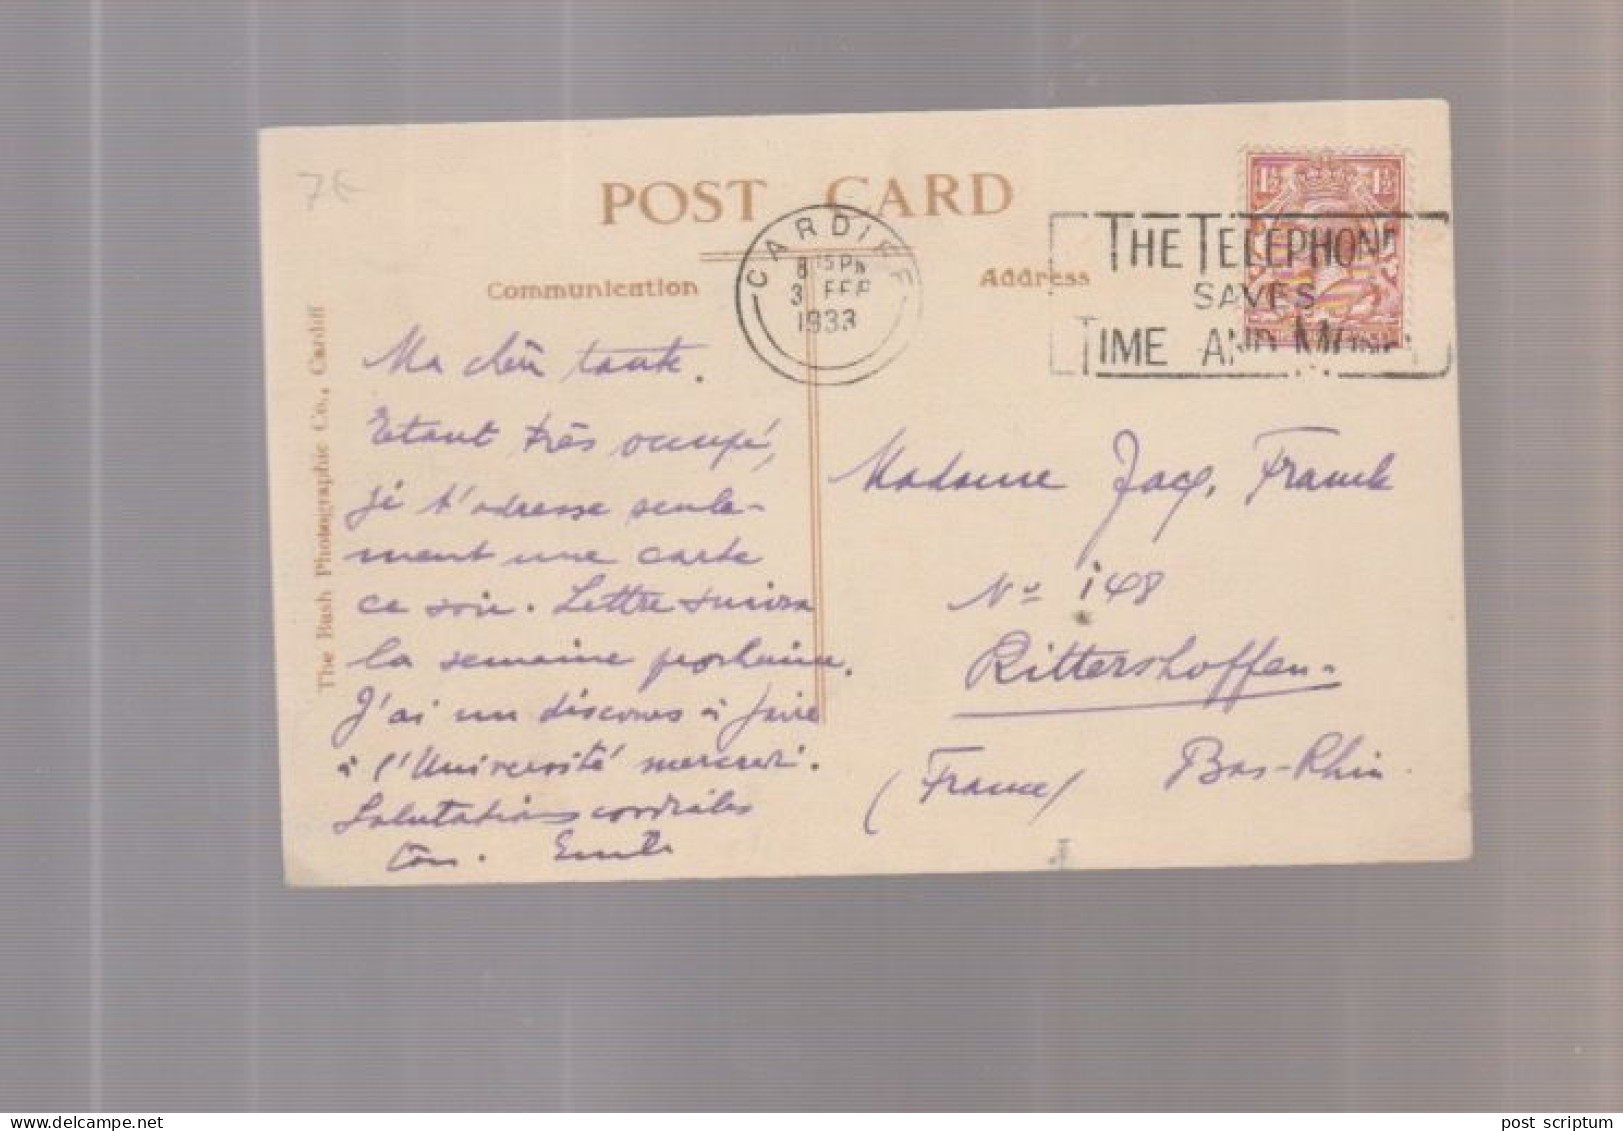 7€
POST CARD
CARDIFF
8 15 PM
3 FEB
1933
THE TELEPHONE
SAVES
TIME AND MONEY
1½ 1½
Communication
Address
The Bush Photographic Co., Cardiff
Ma chère tante.
Etant très occupé,
je t'adresse seule-
ment une carte
ce soir. Lettre suivra
la semaine prochaine.
J'ai un discours à faire
à l'Université mercredi.
Salutations cordiales
Ton. Emile
Madame Jacq. Franck
No 148
Rittershoffen
Bas-Rhin
(France)
post scriptum